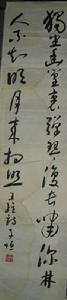 獨坐幽篁裏彈琴復長嘯深林
人不知明月来相照
王維詩